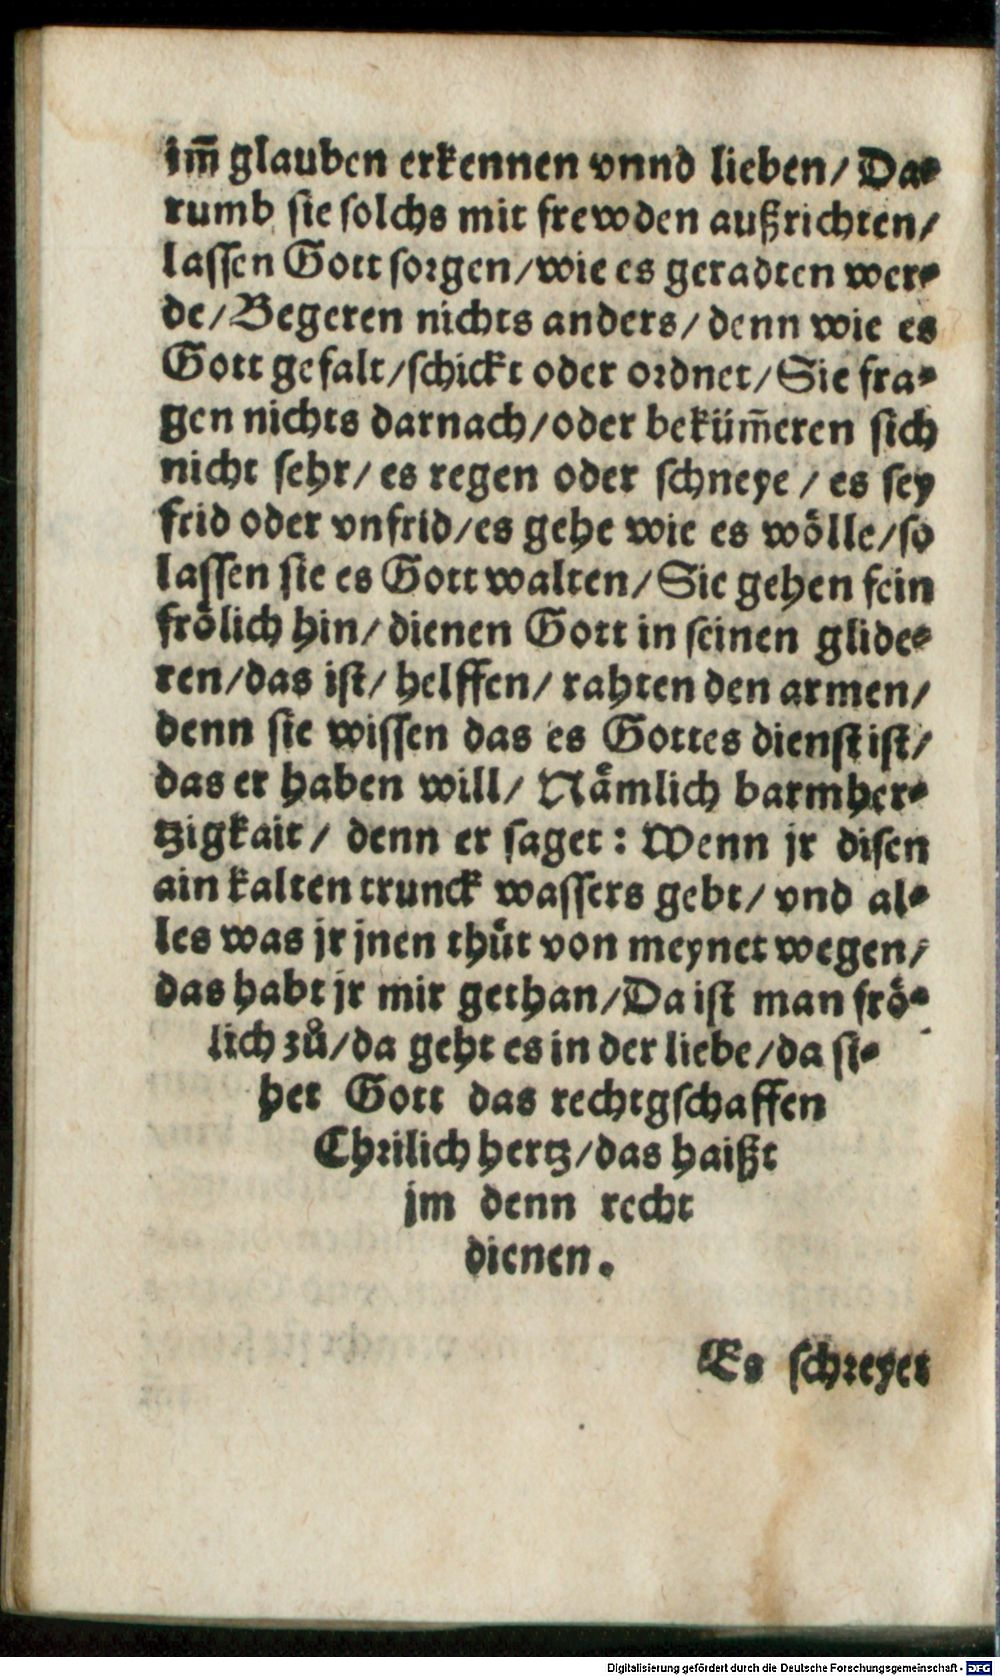 im̃ glauben erkennen vnnd lieben/ Da⸗
rumb sie solchs mit frewden außrichten/
lassen Gott sorgen/wie es geradten wer⸗
de/Begeren nichts anders/denn wie es
Gott gefalt/schickt oder ordnet/Sie fra⸗
gen nichts darnach/oder beküm̃eren sich
nicht sehr/es regen oder schneye/es sey
frid oder vnfrid/es gehe wie es wölle/so
lassen sie es Gott walten/Sie gehen fein
frölich hin/dienen Gott in seinen glide⸗
ren/das ist/helffen/rahten den armen/
denn sie wissen das es Gottes dienst ist/
das er haben will/Nämlich barmher⸗
tzigkait/denn er saget: Wenn jr disen
ain kalten trunck wassers gebt/vnd al⸗
les was jr jnen thüt von meynet wegen/
das habt jr mir gethan/Da ist man frö⸗
lich zů/da geht es in der liebe/da si⸗
het Gott das rechtgschaffen
Chrilich hertz/das haißt
jm denn recht
dienen.
Es schreyet
Digitalisierung gefördert durch die Deutsche Forschungsgemeinschaft - DFG